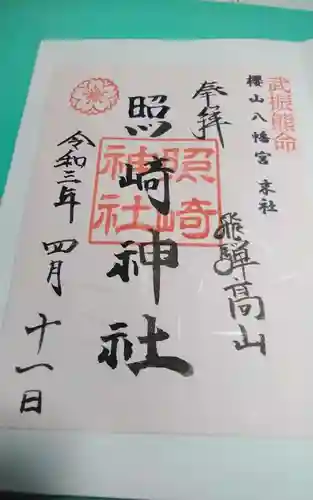 武振熊命
櫻山八幡宮 末社
奉拝
飛騨高山
照崎神社
照崎神社
令和三年 四月 十一日